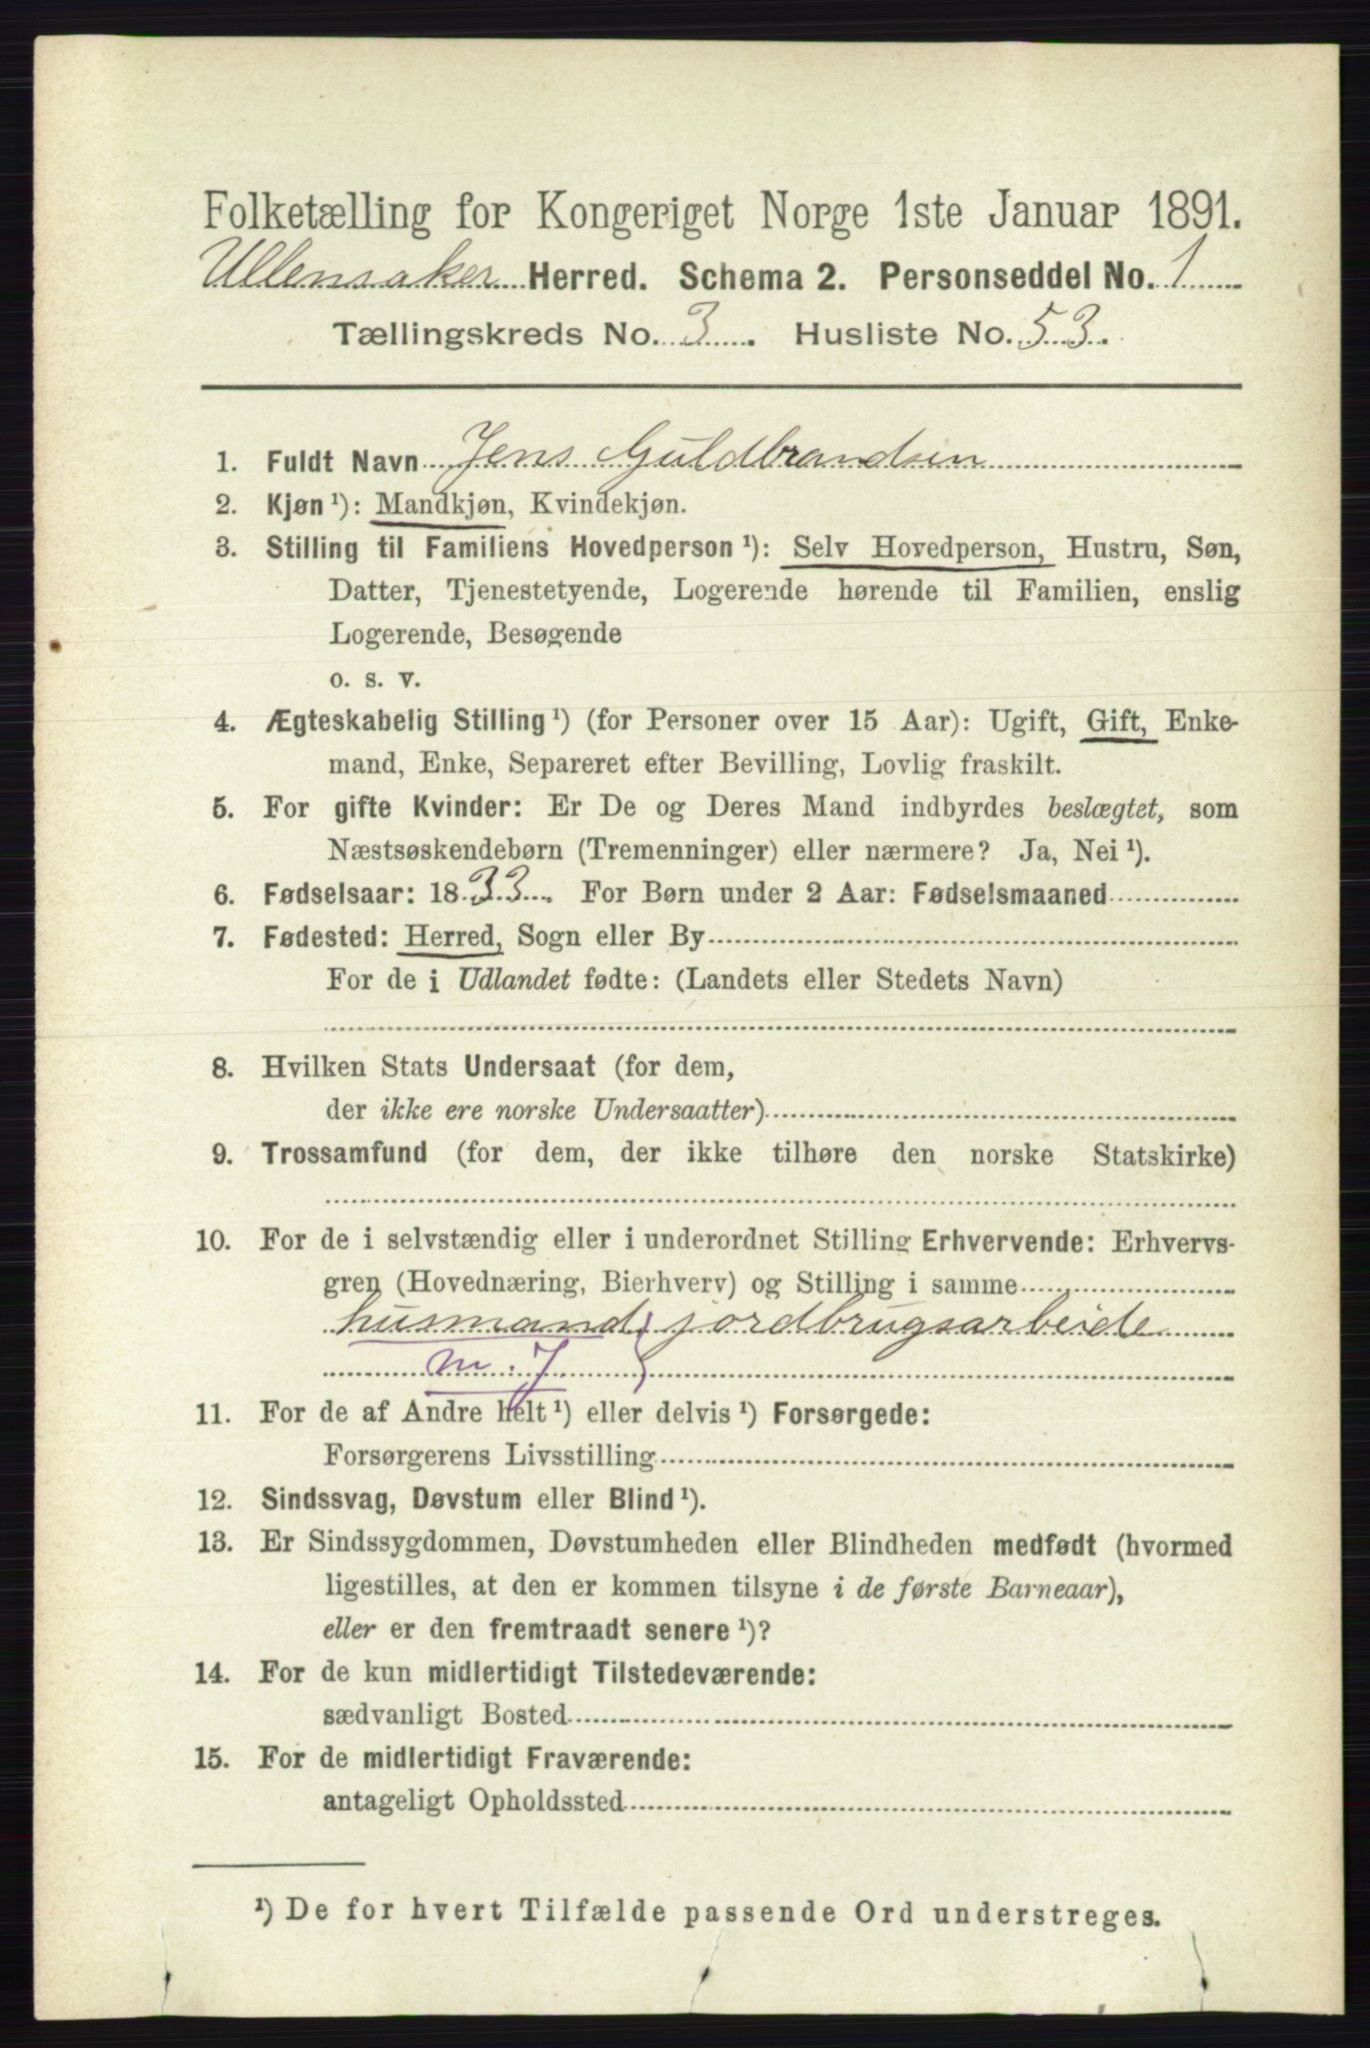 Folketælling for Kongeriget Norge 1ste Januar 1891.
Ullensaker Herred. Schema 2. Personseddel No. 1
Tællingskreds No. 3. Husliste No. 53.
1. Fuldt Navn Jens Guldbrandsen
2. Kjøn ¹): Mandkjøn, Kvindekjøn.
3. Stilling til Familiens Hovedperson ¹): Selv Hovedperson, Hustru, Søn,
Datter, Tjenestetyende, Logerende hørende til Familien, enslig
Logerende, Besøgende
o. s. v.
4. Ægteskabelig Stilling ¹) (for Personer over 15 Aar): Ugift, Gift, Enke-
mand, Enke, Separeret efter Bevilling, Lovlig fraskilt.
5. For gifte Kvinder: Er De og Deres Mand indbyrdes beslægtet, som
Næstsøskendebørn (Tremenninger) eller nærmere? Ja, Nei ¹).
6. Fødselsaar: 1833. For Børn under 2 Aar: Fødselsmaaned
7. Fødested: Herred, Sogn eller By
For de i Udlandet fødte: (Landets eller Stedets Navn)
8. Hvilken Stats Undersaat (for dem,
der ikke ere norske Undersaatter)
9. Trossamfund (for dem, der ikke tilhøre den norske Statskirke)
10. For de i selvstændig eller i underordnet Stilling Erhvervende: Erhvervs-
gren (Hovednæring, Bierhverv) og Stilling i samme
husmand, jordbrugsarbeide
m. J
11. For de af Andre helt ¹) eller delvis ¹) Forsørgede:
Forsørgerens Livsstilling
12. Sindssvag, Døvstum eller Blind ¹).
13. Er Sindssygdommen, Døvstumheden eller Blindheden medfødt (hvormed
ligestilles, at den er kommen tilsyne i de første Barneaar),
eller er den fremtraadt senere ¹)?
14. For de kun midlertidigt Tilstedeværende:
sædvanligt Bosted
15. For de midlertidigt Fraværende:
antageligt Opholdssted
¹) De for hvert Tilfælde passende Ord understreges.